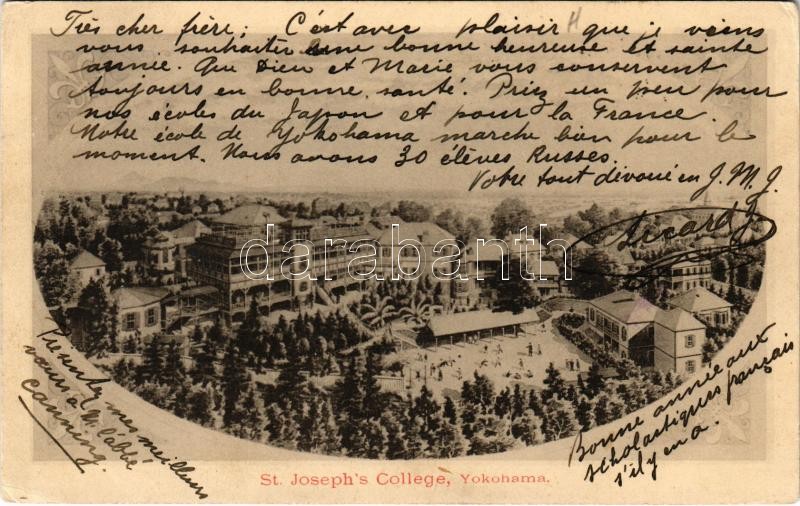 Très cher frère; C'est avec plaisir que je viens
vous souhaiter une bonne heureuse et sainte
année. Que Dieu et Marie vous conservent
toujours en bonne santé. Priez un peu pour
nos écoles du Japon et pour la France.
Notre école de Yokohama marche bien pour le
moment. Nous avons 30 élèves Russes.
Votre tout dévoué en J.M.J.
Sicard J.
darabanth.com
Présentez mes meilleurs
vœux à M. l'abbé
Canning.
Bonne année aux
scholastiques français
s'il y en a.
St. Joseph's College, Yokohama.